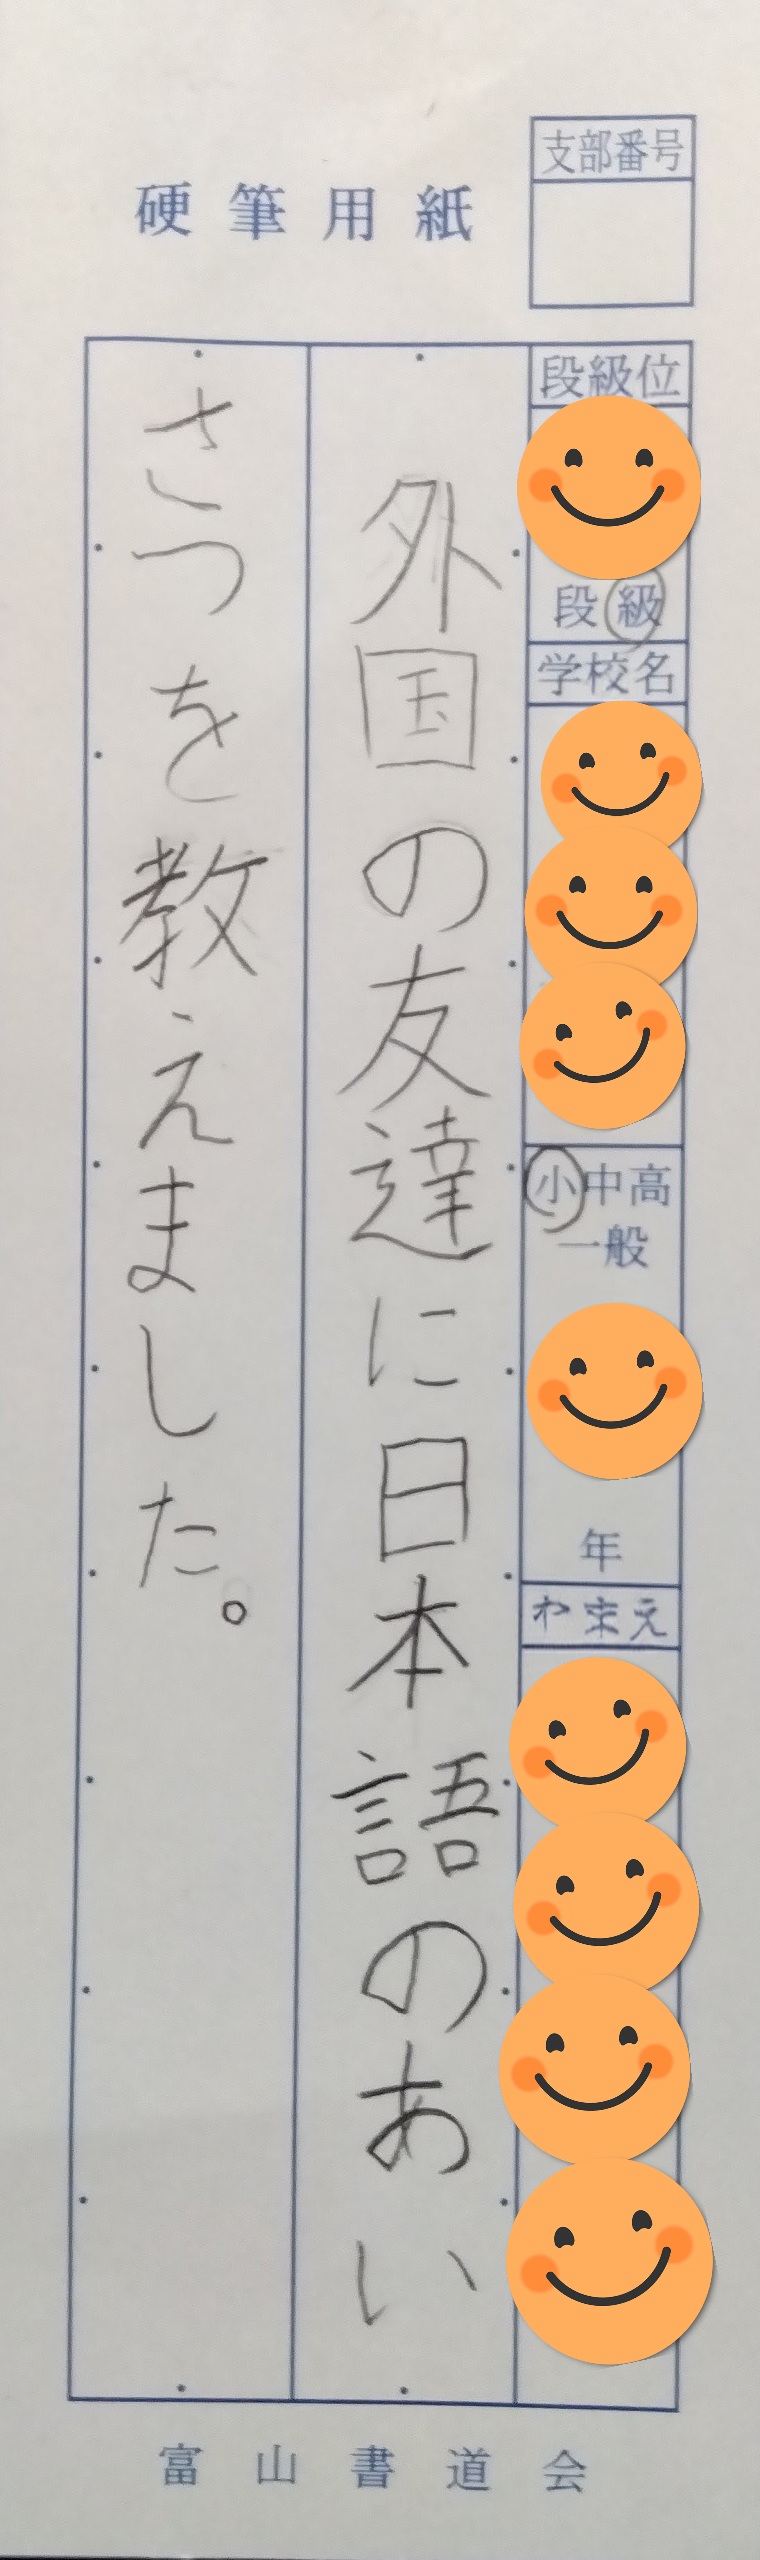 硬筆用紙
支部番号
段級位
段級
学校名
小中高
一般
年
なまえ
外国の友達に日本語のあい
さつを教えました。
富山書道会